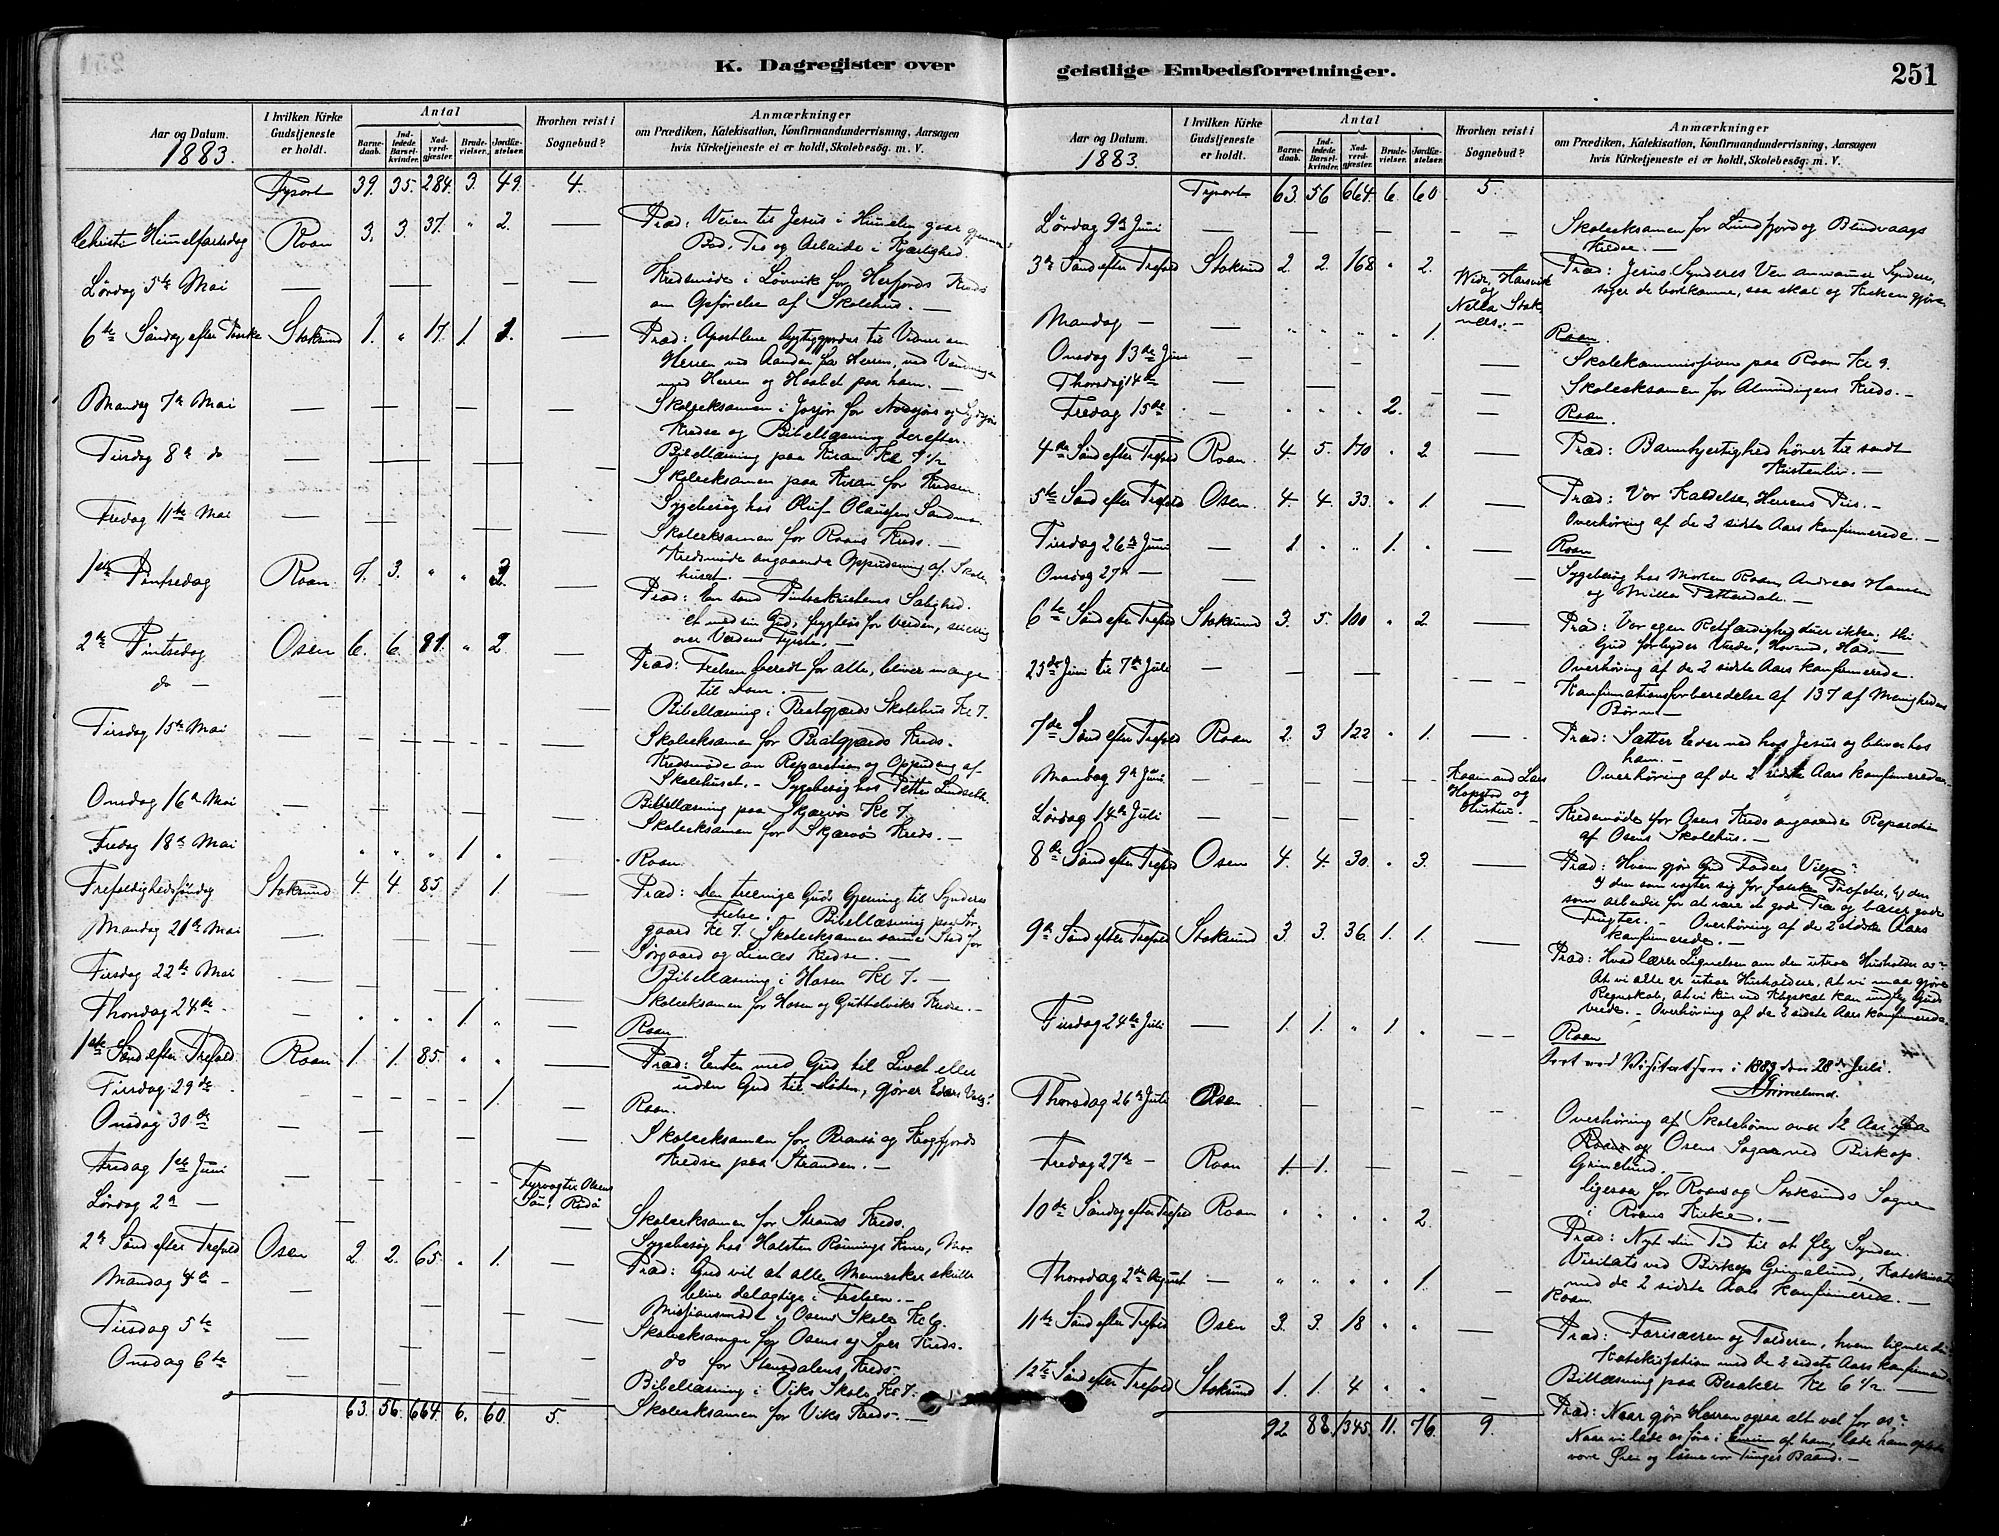 K. Dagregister over
Aar og Datum.
1883.
I hvilken Kirke
Gudstjeneste
er holdt.
Antal
Barne-
daab.
Ind-
ledede
Barsel-
kvinder.
Nad-
verd-
gjæster.
Brude-
vielser.
Jordfæ-
stelser.
Hvorhen reist i
Sognebud?
Anmærkninger
om Prædiken, Katekisation, Konfirmandundervisning, Aarsagen
hvis Kirketjeneste ei er holdt, Skolebesög. m. V.
39. 35. 284. 3. 49. 4.
Christi Himmelfartsdag Roan 3. 3. 37. " 2. — Præd: Veien til Jesus i Himmelen gaar gjennem
Bøn, Tro og Arbeide i Kjærlighed.
Lørdag 5te Mai — Kredsmøde i Løvvik for Herfjords Kreds
om Opførelse af Skolehus. —
6te Søndag efter Paaske Stoksund 1. " 17. 1. — Præd: Apostlene til Vidner om
Herren ved Aanden fra Herren, ved
med Herren og Haabet paa ham. —
Mandag 7de Mai — Skoleeksamen i for og
Kredse og Bibellæsning derefter.
Tirsdag 8de do — Bibellæsning paa Kiran Kl
Skoleeksamen paa Kiran for Kredsen.
Fredag 11te Mai — Sygebesøg hos Oluf Olausen
Skoleeksamen for Roans Kreds. —
Kredsmøde angaaende Oppudsning af Skole-
huset. —
1ste Pintsedag Roan. 3. " " Præd: En sand Pintsekristens Salighed.
for Verden,
over Verdens
2den Pintsedag Osen 6. 6. 81. " 2. — Præd: Frelsen beredt for alle, bliver mange
til Dom. —
do — Bibellæsning i Bratgjærds Skolehus Kl 7.
Tirsdag 15te Mai — Skoleeksamen for Bratgjærds Kreds.
Kredsmøde om Reparation og Oppudsning af
Skolehuset. — Sygebesøg hos Petter
Onsdag 16de Mai — Bibellæsning paa Skjærvø Kl 7.
Skoleeksamen for Skjærvø Kreds. —
Fredag 18de Mai " " " 1. " — Roan
Trefoldighedssøndag Stoksund 4. 4. 85. 1. — Præd: Den treenige Guds Gjerning til Synderes
Frelse. Bibellæsning paa Sør-
Mandag 21de Mai — gaard Kl 7. Skoleeksamen samme Sted for
Sørgaard og Kredse. —
Tirsdag 22de Mai — Bibellæsning i Hosen Kl 7. —
Skoleeksamen for Hosen og Guttelviks Kredse. —
Thorsdag 24de — " " " 1. " — Roan
1ste Sønd efter Trefold. Roan 1. 1. 85. " " — Præd: Enten med Gud til Livet eller
uden Gud til Døden, gjører Eders Valg!
Tirsdag 29de — 1. — Roan.
Onsdag 30te — Skoleeksamen for Brandsø og Krogfjords
Kredse paa Stranden. —
Fredag 1ste Juni — Fyrvogter Olsens
Søn, — Skoleeksamen for Strands Kreds.
Lørdag 2de — Sygebesøg hos Halsten Rønnings Kone,
2den Sønd efter Trefold Osen 2. 2. 65. " 1. — Præd: Gud vil at alle Mennesker skulle
blive delagtige i Frelsen. —
Mandag 4de — Missionsmøde i Osens Skole Kl 6.
Skoleeksamen for Osens og Kreds.
Tirsdag 5te — do for Kreds.
Bibellæsning i Viks Skole Kl 7.
Onsdag 6te — Skoleeksamen for Viks Kreds. —
63. 56. 664. 6. 60. 5.
geistlige Embedsforretninger.
251
Aar og Datum.
1883
I hvilken Kirke
Gudstjeneste
er holdt.
Antal
Barne-
daab.
Ind-
ledede
Barsel-
kvinder.
Nad-
verd-
gjæster.
Brude-
vielser.
Jordfæ-
stelser.
Hvorhen reist i
Sognebud?
Anmærkninger
om Prædiken, Katekisation, Konfirmandundervisning, Aarsagen
hvis Kirketjeneste ei er holdt, Skolebesög. m. V.
63. 56 664. 6. 60. 5.
Lørdag 9de Juni — Skoleeksamen for og
Kredse. —
3de Sønd efter Trefold Stoksund 2. 2. 168 " 2. Harsvik
og
Stok-
— Præd: Jesus Synderes Ven annammer Syndere,
søger de bortkomne, saa skal og Kirken gjøre.
Mandag — " " " " 1. Roan.
Onsdag 13de Juni — Skolekommissionen paa Roan Kl 9.
Thorsdag 14de — Skoleeksamen for Almindingens Kreds. —
Fredag 15de — " " " 2. — Roan.
4de Sønd efter Trefold Roan. 4. 5. 170 " 2 — Præd: Barmhjertighed hører til sandt
Kristenliv. —
5te Sønd efter Trefold Osen. 4. 4. 33. " 1. — Præd: Vor Kaldelse, Herrens Pris. —
Overhøring af de 2 sidste Aars konfirmerede. —
Tirsdag 26de Juni — 1. " " 1. " Roan
Onsdag 27de — Sygebesøg hos Morten Roan, Andreas Hansen
og
6te Sønd efter Trefold Stoksund 3. 5. 100 " 2 — Præd: Vor egen Retfærdighed duer ikke;
Gud forbyder Vrede, Hovmod, Had. —
Overhøring af de 2 sidste Aars konfirmerede.
23de Juni til 7de Juli — Konfirmationsforberedelse af 137 af Menighedens
Børn. —
7de Sønd efter Trefold Roan 2. 3 122 " 1. — Præd: Sætter Eder ned hos Jesus og bliver hos
ham. —
Overhøring af de 2 sidste Aars konfirmerede. —
Mandag 9de Juni — Lars
Hopstad og
Hustru. —
Lørdag 14de Juli — Kredsmøde for Osens Kreds angaaende Reparation
af Osens Skolehus. —
8de Sønd efter Trefold Osen 4. 4. 30. " 3. — Præd: Hvem gjør Gud Faders Vilje?
den som vogter sig for falske Profeter, den
som arbeider for at være et godt Træ og bærer gode
Frugter. — Overhøring af de 2 sidste Aars
konfirmerede. —
9de Sønd efter Trefold Stoksund 3. 3. 36. 1. 1. — Præd: Hvad lærer Lignelsen om den utroe Husholder os?
At vi alle er utroe Husholdere, at vi maa gjøre
Regnskab, at vi kun ved Klogskab kan undfly Guds
Vrede. — Overhøring af de 2 sidste Aars konfirmerede.
Tirsdag 24de Juli — 1. 1. " 1. — Roan
ved Visitatsen i 1883 den 28de Juli.
Grimelund.
Thorsdag 26de Juli Osen — Overhøring af Skolebørn over 12 Aar fra
Roans og Osens Sogne ved Biskop
Grimelund. —
Fredag 27de — Roan 1. 1. — ligesaa for Roans og Stoksunds Sogne
i Roans Kirke. —
10de Søndag efter Trefold Roan " " " " 2. Præd: Nyt din Tid til at fly Synden.
Visitats ved Biskop Grimelund, Katekisats
med de 2 sidste Aars konfirmerede. —
Thorsdag 2den August — " " " " 1. Roan.
11te Sønd efter Trefold Osen 3. 3. 18 " " — Præd: Farisæeren og Tolderen, hvem ligner du?
Katekisation med de 2 sidste Aars konfirmerede
Bibellæsning paa Besaker Kl 6 1/2 —
12te Sønd efter Trefold Stoksund 1. 1. 4 " " — Præd: Naar gjør Herren ogsaa alt vel for os?
Naar vi lade os føre i af ham, lade ham oplade
vore Øren og løsne vor Tunges Baand. —
92 88. 1345. 11. 76. 9.